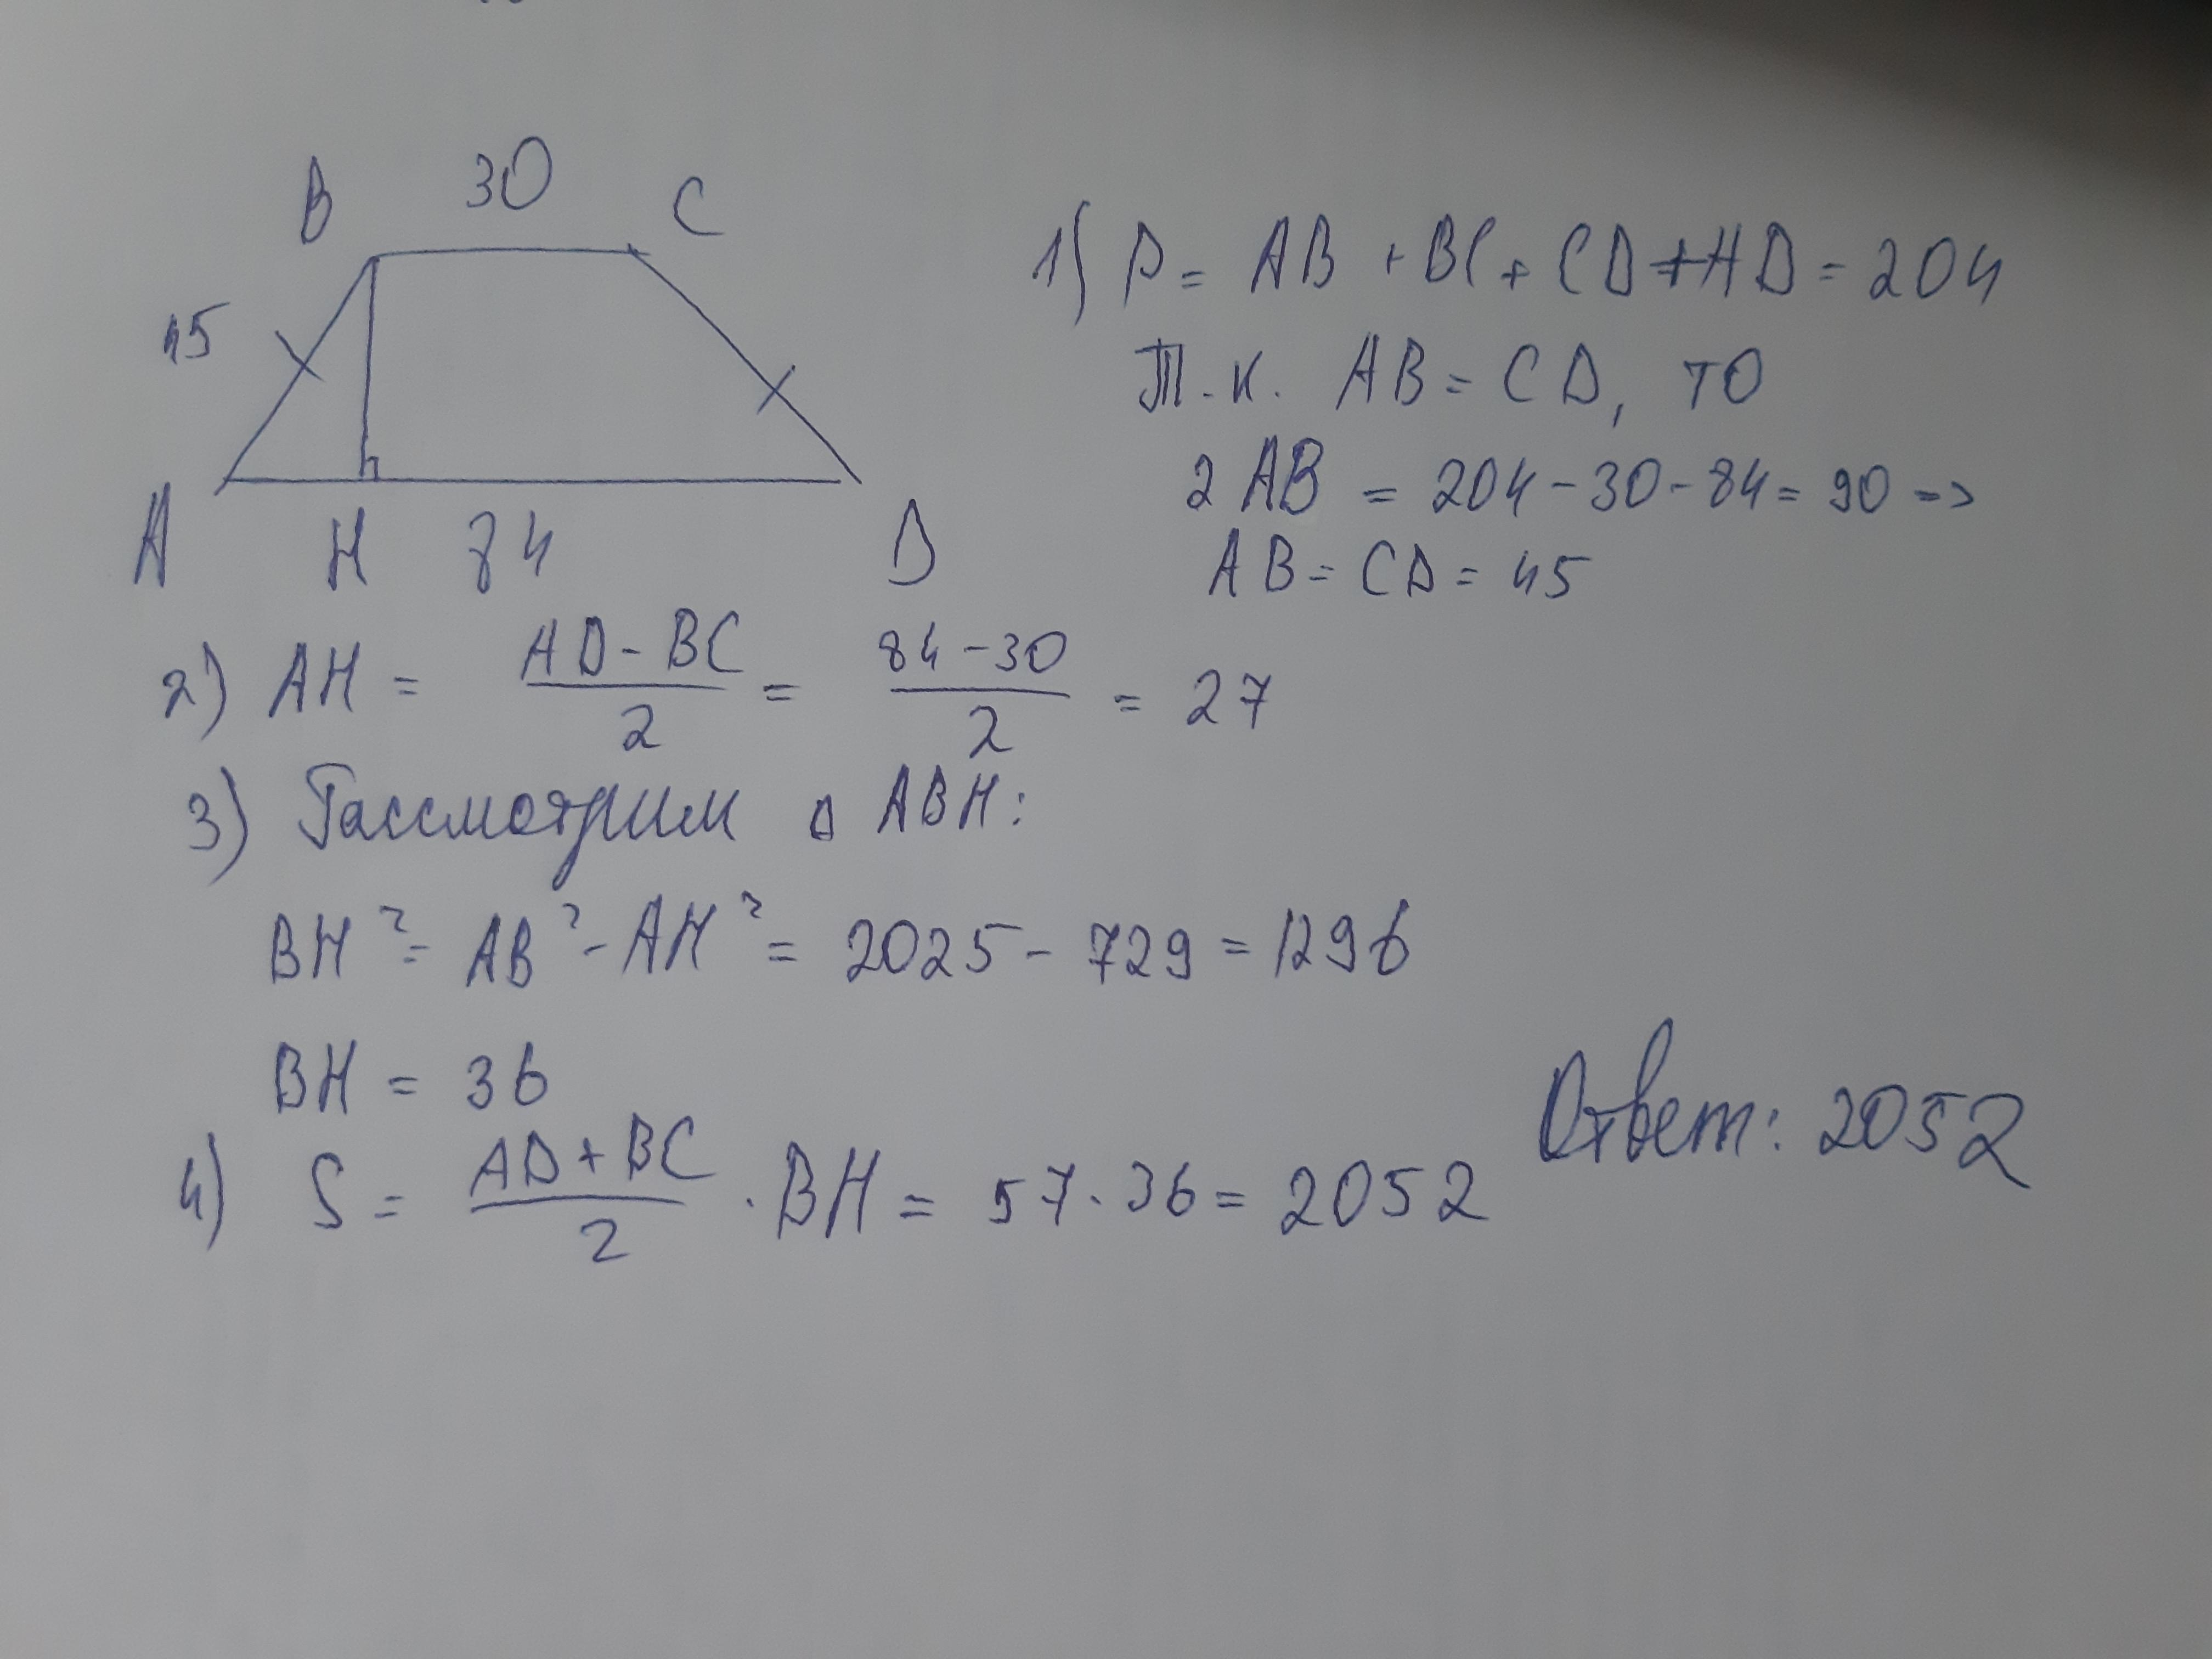 B 30 C
45
A H 84 D
1) P = AB + BC + CD + AD = 204
Т.к. AB = CD, то
2AB = 204 - 30 - 84 = 90 =>
AB = CD = 45
2) AH = (AD - BC)/2 = (84 - 30)/2 = 27
3) Рассмотрим △ ABH:
BH² = AB² - AH² = 2025 - 729 = 1296
BH = 36
4) S = (AD + BC)/2 · BH = 57 · 36 = 2052
Ответ: 2052